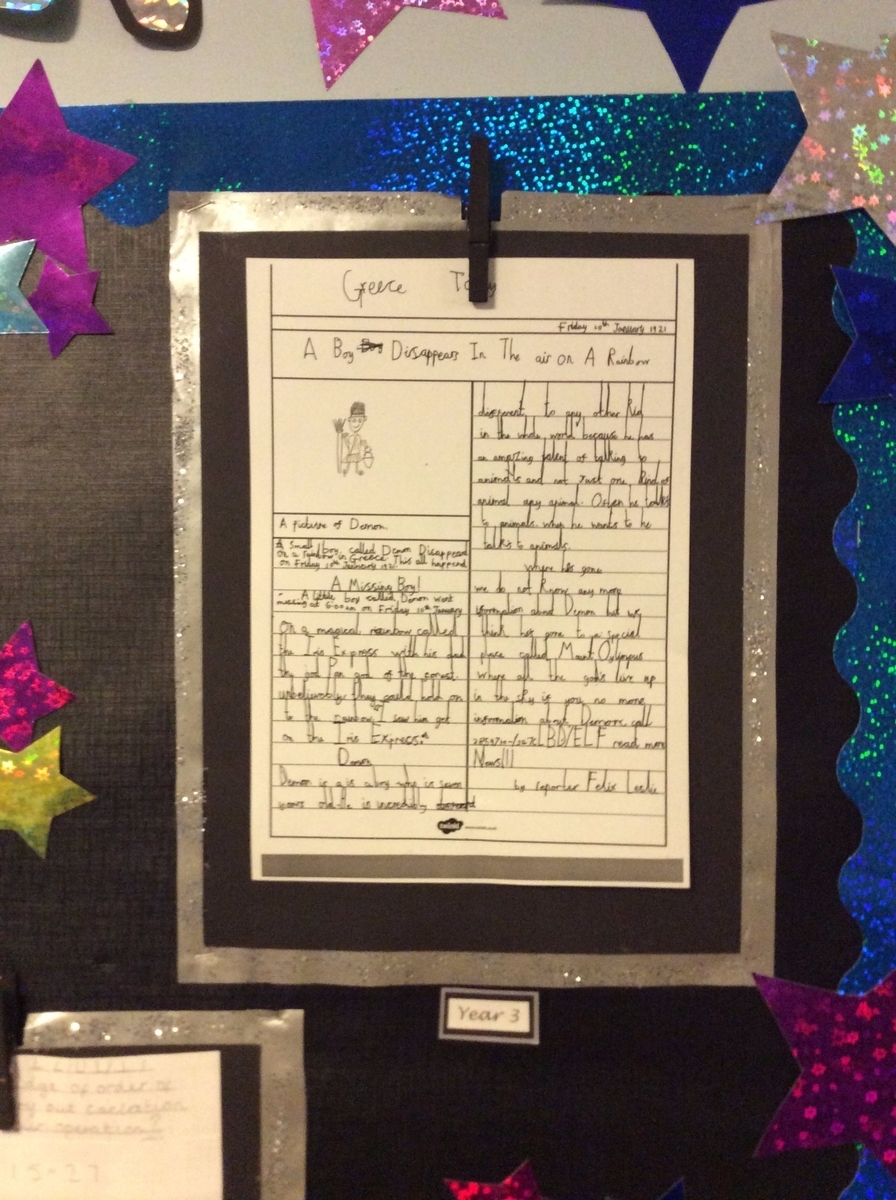 Greece
Friday 10th January 1921
A Boy Boy Dissappears In The air on A Rainbow
A picture of Demon
A Small boy called Demon Disappeared
on a rainbow in Greece. This all happend
on Friday 10th January 1921.
A Missing Boy!
A little boy called Demon went
missing at 6:00am on Friday 10th January
On a magical rainbow called
the Iris Express with his
the god Pan god of the
unbelievably they could hold on
to the rainbow I saw him get
on the Iris Express.
Demon
Demon is a is a boy who is seven
years old. He is incredibly
different to any other Kid
in the whole world because he has
an amazing talent of talking to
animals and not Just one Kind of
animal any animal. Often he talks
to animals. when he wants to he
talks to animals.
where he's gone
we do not Know any more
information about Demon but we
think he's gone to a special
place called Mount Olympus
where all the gods live up
in the sky if you no more
information about Demon call
LBD/ELF read more
News!!!
by reporter Felix Leslie
twinkl
Year 3
edge of order of
out
operation
15-27